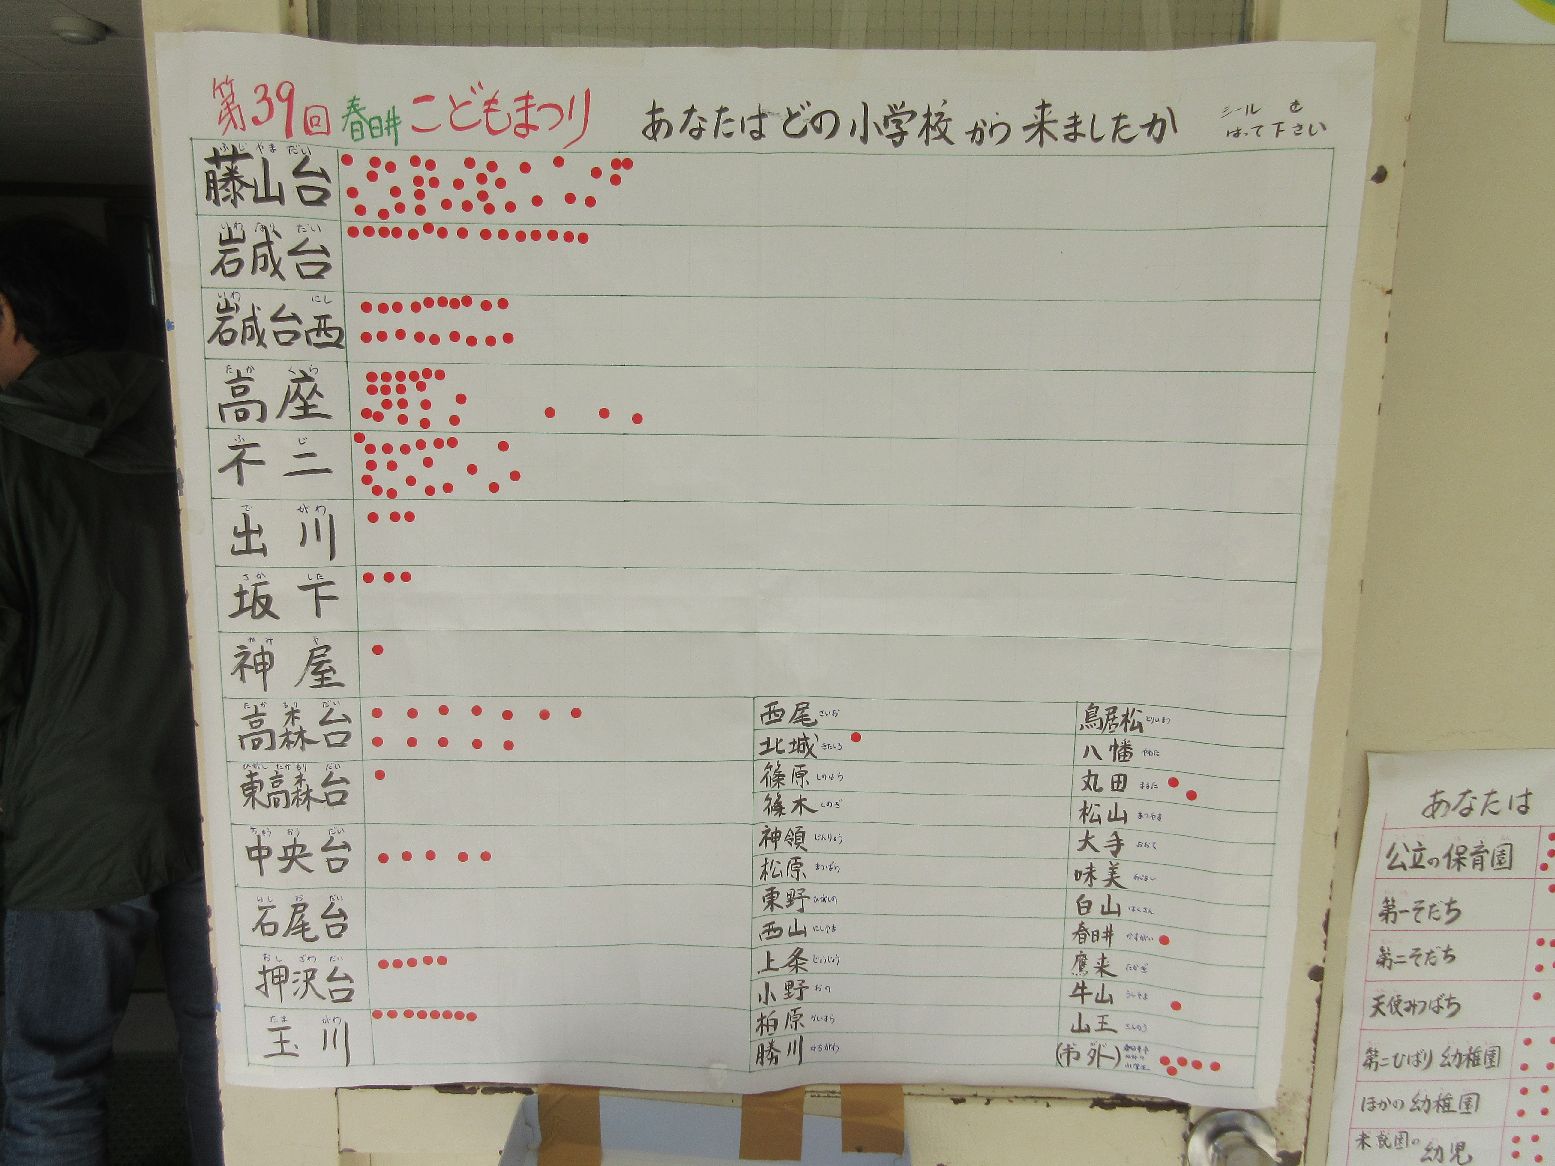 第39回 春日井 こどもまつり あなたは どの 小学校 から 来ましたか
シール を
はって下さい
ふじ やま だい
藤山台
いわ なり だい
岩成台
いわ にし
岩成台西
たか くら
高座
ふ じ
不二
で がわ
出川
さか した
坂下
かみ や
神屋
たか もり だい
高森台
ひがし たか もり だい
東高森台
ちゅう おう だい
中央台
いし お だい
石尾台
おし ざわ だい
押沢台
たま がわ
玉川
西尾 さいお
北城 きたしろ
篠原 しのはら
篠木 しのぎ
神領 じんりょう
松原 まつばら
東野 ひがしの
西山 にしやま
上条 じょうじょう
小野 おの
柏原 かしはら
勝川 かちがわ
鳥居松 とりいまつ
八幡 やはた
丸田 まるた
松山 まつやま
大手 おおて
味美 あじよし
白山 はくさん
春日井 かすがい
鷹来 たかき
牛山 うしやま
山王 さんのう
(市外)
あなたは
公立の保育園
第一そだち
第二そだち
天使みつばち
第二ひばり幼稚園
ほかの幼稚園
未就園の幼児